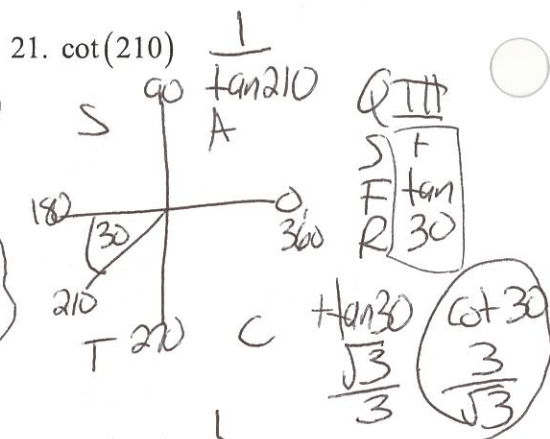 21. cot(210)
1
tan210
90
S
A
180
30
0
360
210
T
270
C
Q III
S +
F tan
R 30
+tan30
√3
3
cot 30
3
√3